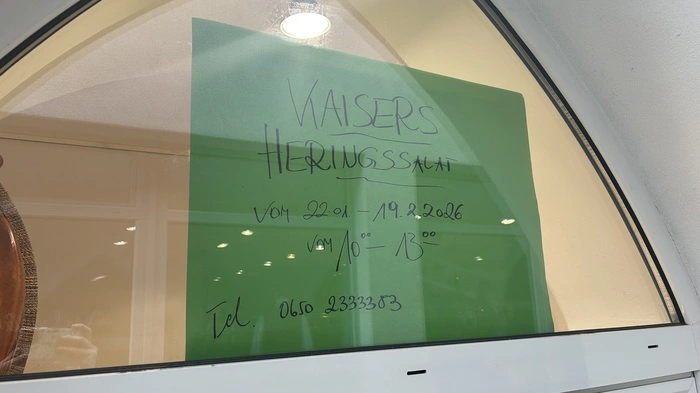 KAISERS
HERINGSSALAT
VOM 22.01. - 19.2.2026
VOM 10⁰⁰ - 13⁰⁰
Tel. 0650 2333383